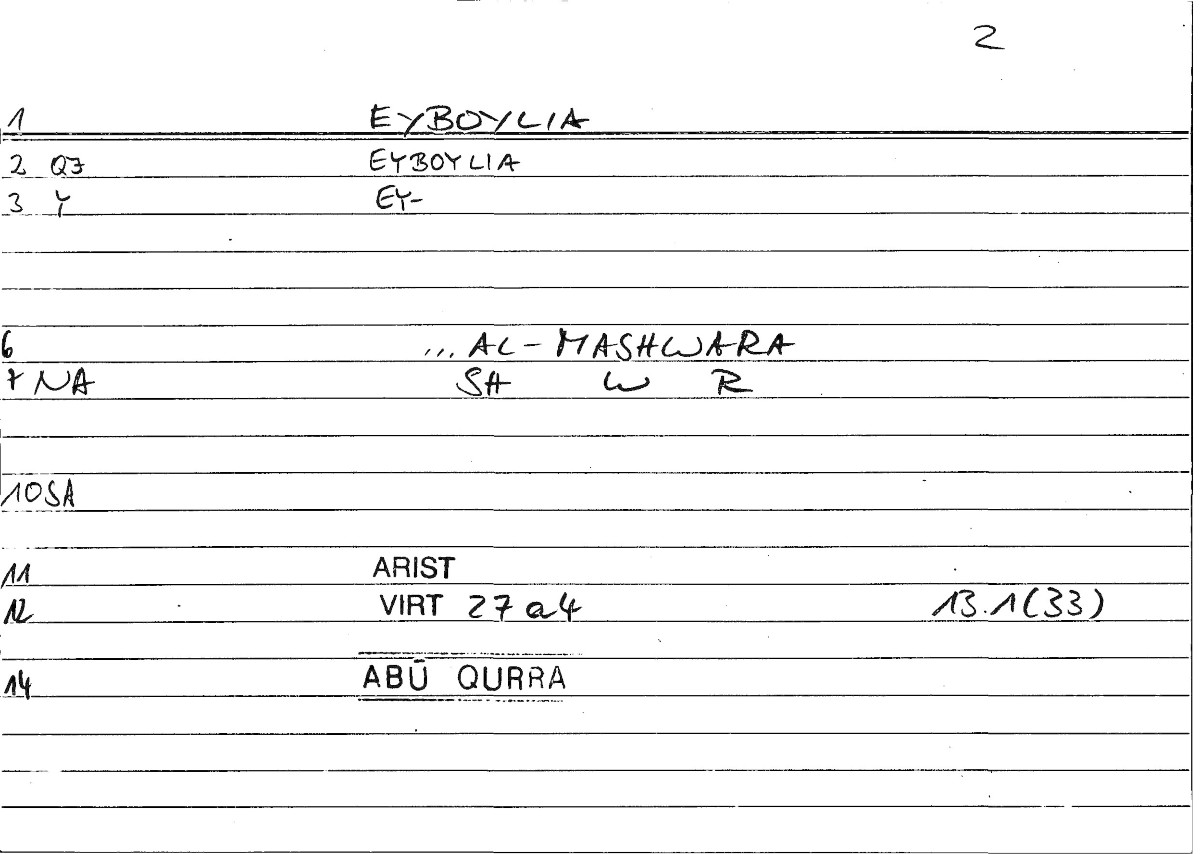 2
1 EYBOYLIA
2 QJ EYBOYLIA
3 Y EY-
6 ... AL-MASHWARA
7 NA SH W R
10 SA
11 ARIST
12 VIRT 27 a 4 13.1(33)
14 ABŪ QURRA